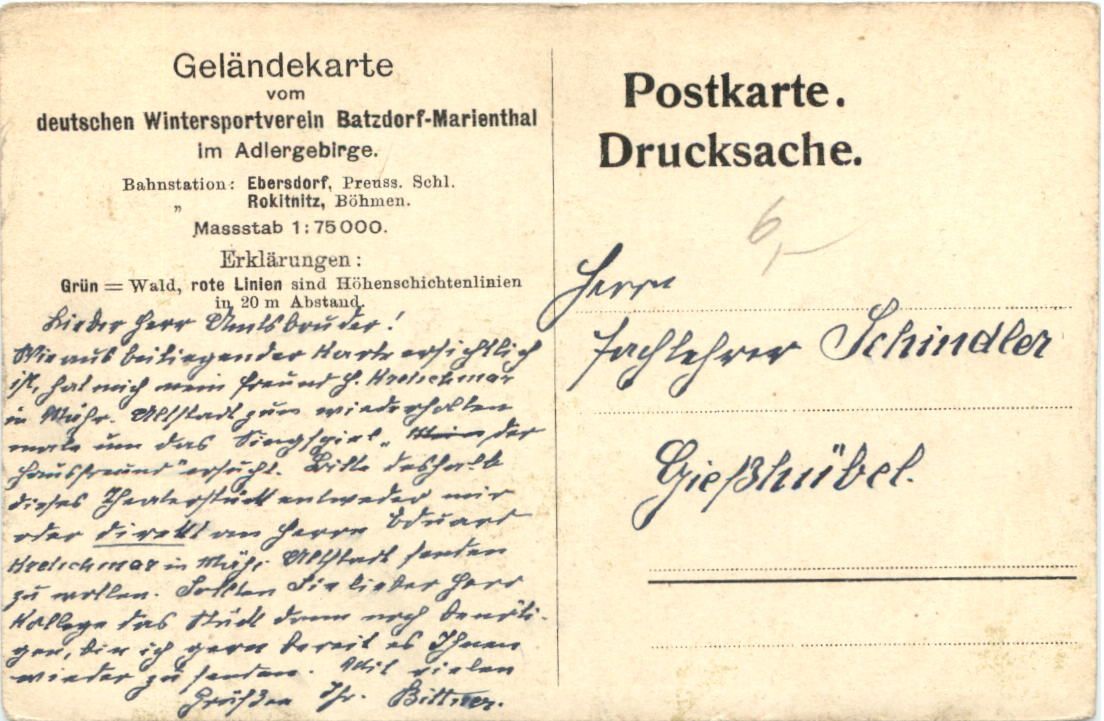 Geländekarte
vom
deutschen Wintersportverein Batzdorf-Marienthal
im Adlergebirge.
Bahnstation: Ebersdorf, Preuss. Schl.
„ Rokitnitz, Böhmen.
Massstab 1:75000.
Erklärungen:
Grün = Wald, rote Linien sind Höhenschichtenlinien
in 20 m Abstand.
Lieber Herr Amtsbruder!
Wie aus beiliegender Karte ersichtlich
ist, hat mich mein Freund H. Kretschmar
in Mähr. Altstadt zum wiederholten
male um das Singspiel „ Mein der
Hausfreund" ersucht. Bitte deshalb
dieses Theaterstück entweder mir
oder direkt an Herrn Eduard
Kretschmar in Mäh. Altstadt senden
zu wollen. Sollten Sie lieber Herr
Kollege das Stück dann noch benöti-
gen, bin ich gern bereit es Ihnen
wieder zu senden. Mit vielen
Grüßen Ihr. Bittner.
Postkarte.
Drucksache.
6,-
Herrn
Fachlehrer Schindler
Gießhübel.